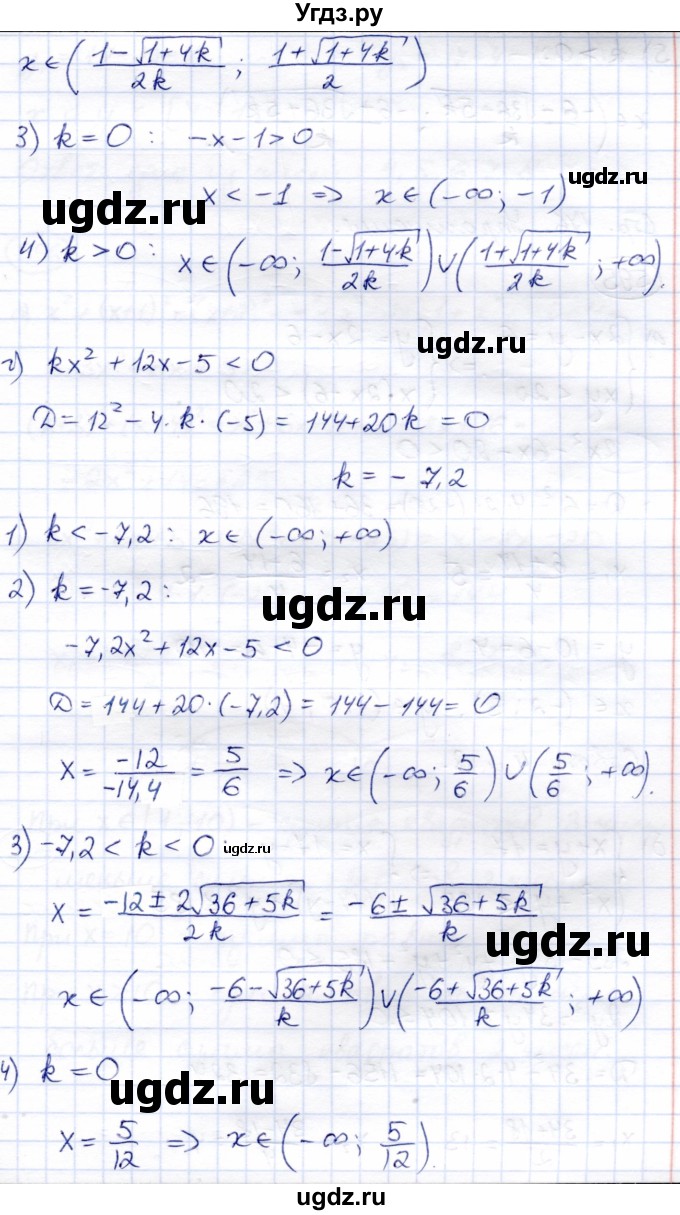 Угдз.ру
x ∈ ( (1 - √(1+4k)) / 2k ; (1 + √(1+4k)) / 2 )
3) k = 0 : -x - 1 > 0
ugdz.ru
x < -1 => x ∈ (-∞; -1)
ugdz.ru
4) k > 0 : x ∈ (-∞; (1 - √(1+4k)) / 2k) ∪ ((1 + √(1+4k)) / 2k ; +∞).
ugdz.ru
г) kx² + 12x - 5 < 0
D = 12² - 4·k·(-5) = 144 + 20k = 0
k = -7,2
1) k < -7,2 : x ∈ (-∞; +∞)
2) k = -7,2 :
ugdz.ru
-7,2x² + 12x - 5 < 0
D = 144 + 20·(-7,2) = 144 - 144 = 0
x = -12 / -14,4 = 5/6 => x ∈ (-∞; 5/6) ∪ (5/6 ; +∞).
3) -7,2 < k < 0
ugdz.ru
x = (-12 ± 2√(36+5k)) / 2k = (-6 ± √(36+5k)) / k
ugdz.ru
x ∈ (-∞; (-6 - √(36+5k)) / k) ∪ ((-6 + √(36+5k)) / k ; +∞)
4) k = 0
ugdz.ru
x = 5/12 => x ∈ (-∞; 5/12).
ugdz.ru